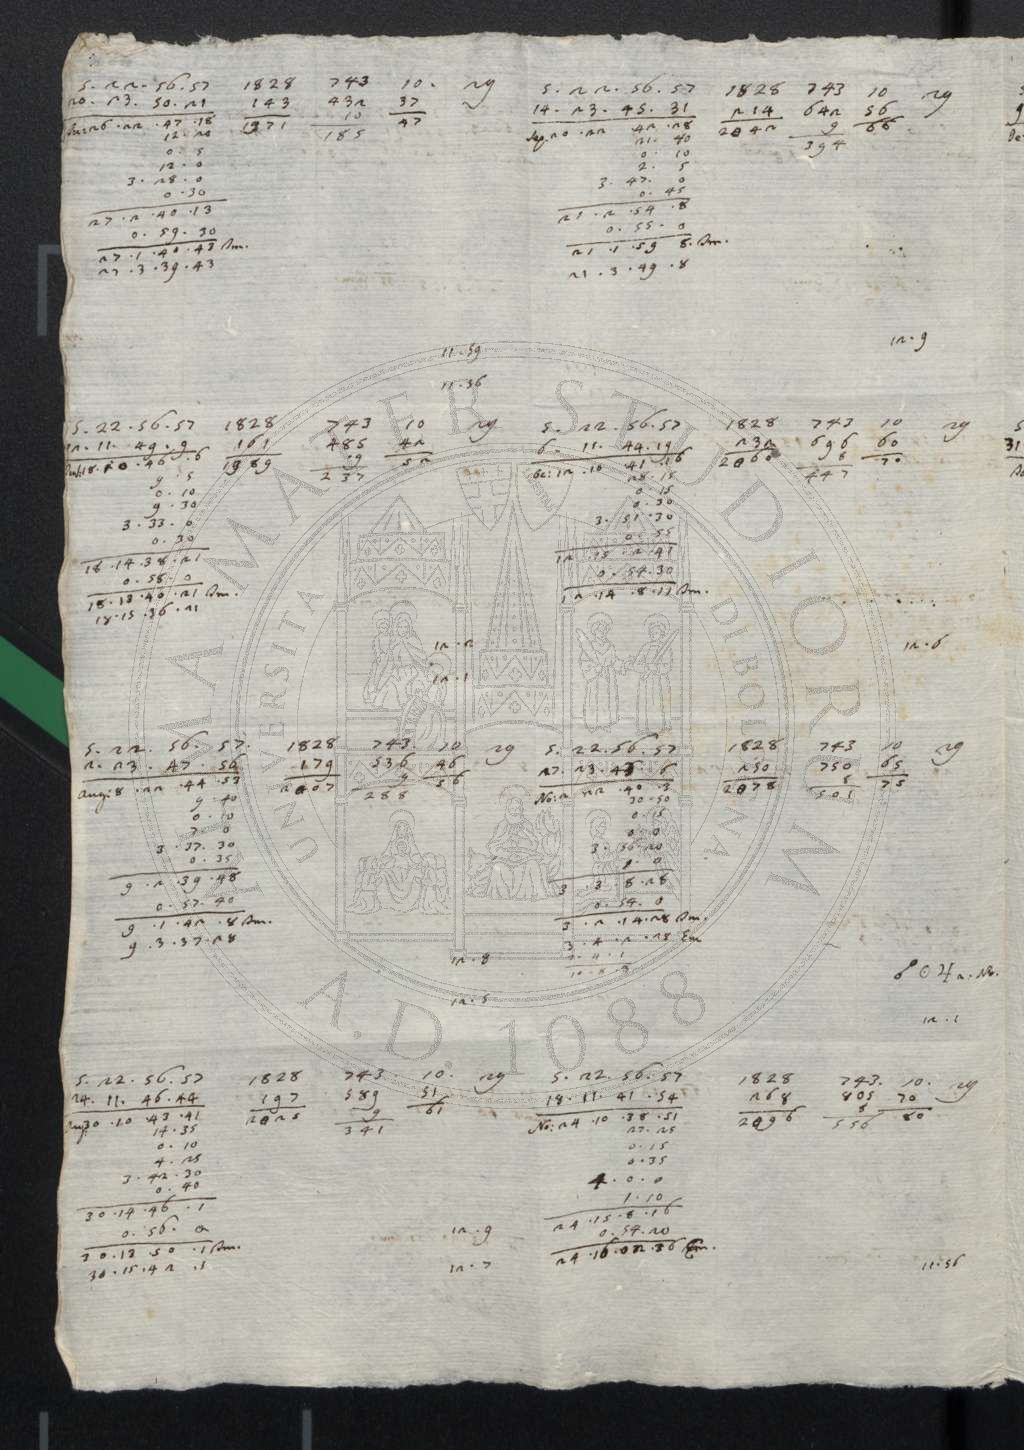 5. 22. 56. 57 1828 743 10. 29
20. 23. 50. 21 143 432 37
26. 22. 47. 18 1971 10 47
12. 20 185
0. 5
12. 0
3. 28. 0
0. 30
27. 2. 40. 13
0. 59. 30
27. 1. 40. 43 Im.
27. 3. 39. 43
5. 22. 56. 57 1828 743 10 29
14. 23. 45. 31 214 642 56
Sep. 20. 22 42. 28 2042 9 66
21. 40 394
0. 10
2. 5
3. 47. 0
0. 45
21. 2. 54. 8
0. 55. 0
21. 1. 59 8. Im.
21. 3. 49. 8
12. 9
11. 59
11. 36
5. 22. 56. 57 1828 743 10 29
12. 11. 49. 9 161 485 42
18. 10. 46. 6 1989 9 52
9. 5 237
0. 10
9. 30
3. 33. 0
0. 30
18. 14. 38. 21
0. 58. 0
18. 13. 40. 21 Im.
18. 15. 36. 21
5. 22. 56. 57 1828 743 10 29
6. 11. 44. 19 232 696 60
12. 10 41. 16 2060 8 70
28. 15 447
0. 15
0. 30
3. 51. 30
0. 55
12. 15. 2. 41
0. 54. 30
12. 14. 8. 11 Im.
12. 2
12. 1
12. 6
5. 22. 56. 57. 1828 743. 10 29
2. 23. 47. 56 179 536 46
Aug: 8. 22. 44. 53 2007 9 56
9. 40 288
0. 10
7. 0
3. 37. 30
0. 35
9. 2. 39. 48
0. 57. 40
9. 1. 42. 8 Im.
9. 3. 37. 28
5. 22. 56. 57 1828 743 10 29
27. 23. 43. 6 250 750 65
No: 2 22. 40. 3 2078 8 75
30. 50 501
0. 15
0. 0
3. 56. 20
1. 0
3. 3. 8. 28
0. 54. 0
3. 2. 14. 28 Im.
3. 4. 2. 28 Em
12. 8
12. 5
☌ ☉ ♃ 2. No.
12. 1
5. 22. 56. 57 1828 743. 10. 29
24. 11. 46. 44 197 589 51
30. 10. 43. 41 2025 9 61
14. 35 341
0. 10
4. 25
3. 42. 30
0. 40
30. 14. 46. 1
0. 56. 0
30. 13 50. 1 Im.
30. 15. 42. 1
5. 22. 56. 57 1828 743. 10. 29
18. 11. 41. 54 268 805 70
No: 24. 10. 38. 51 2096 8 80
27. 25 556
0. 15
0. 35
4. 0. 0
1. 10
24. 15. 8. 16
0. 54. 20
24. 16. 02. 36 Em.
12. 9
12. 7
11. 56
ALMA MATER STUDIORUM
UNIVERSITA DI BOLOGNA
A.D. 1088